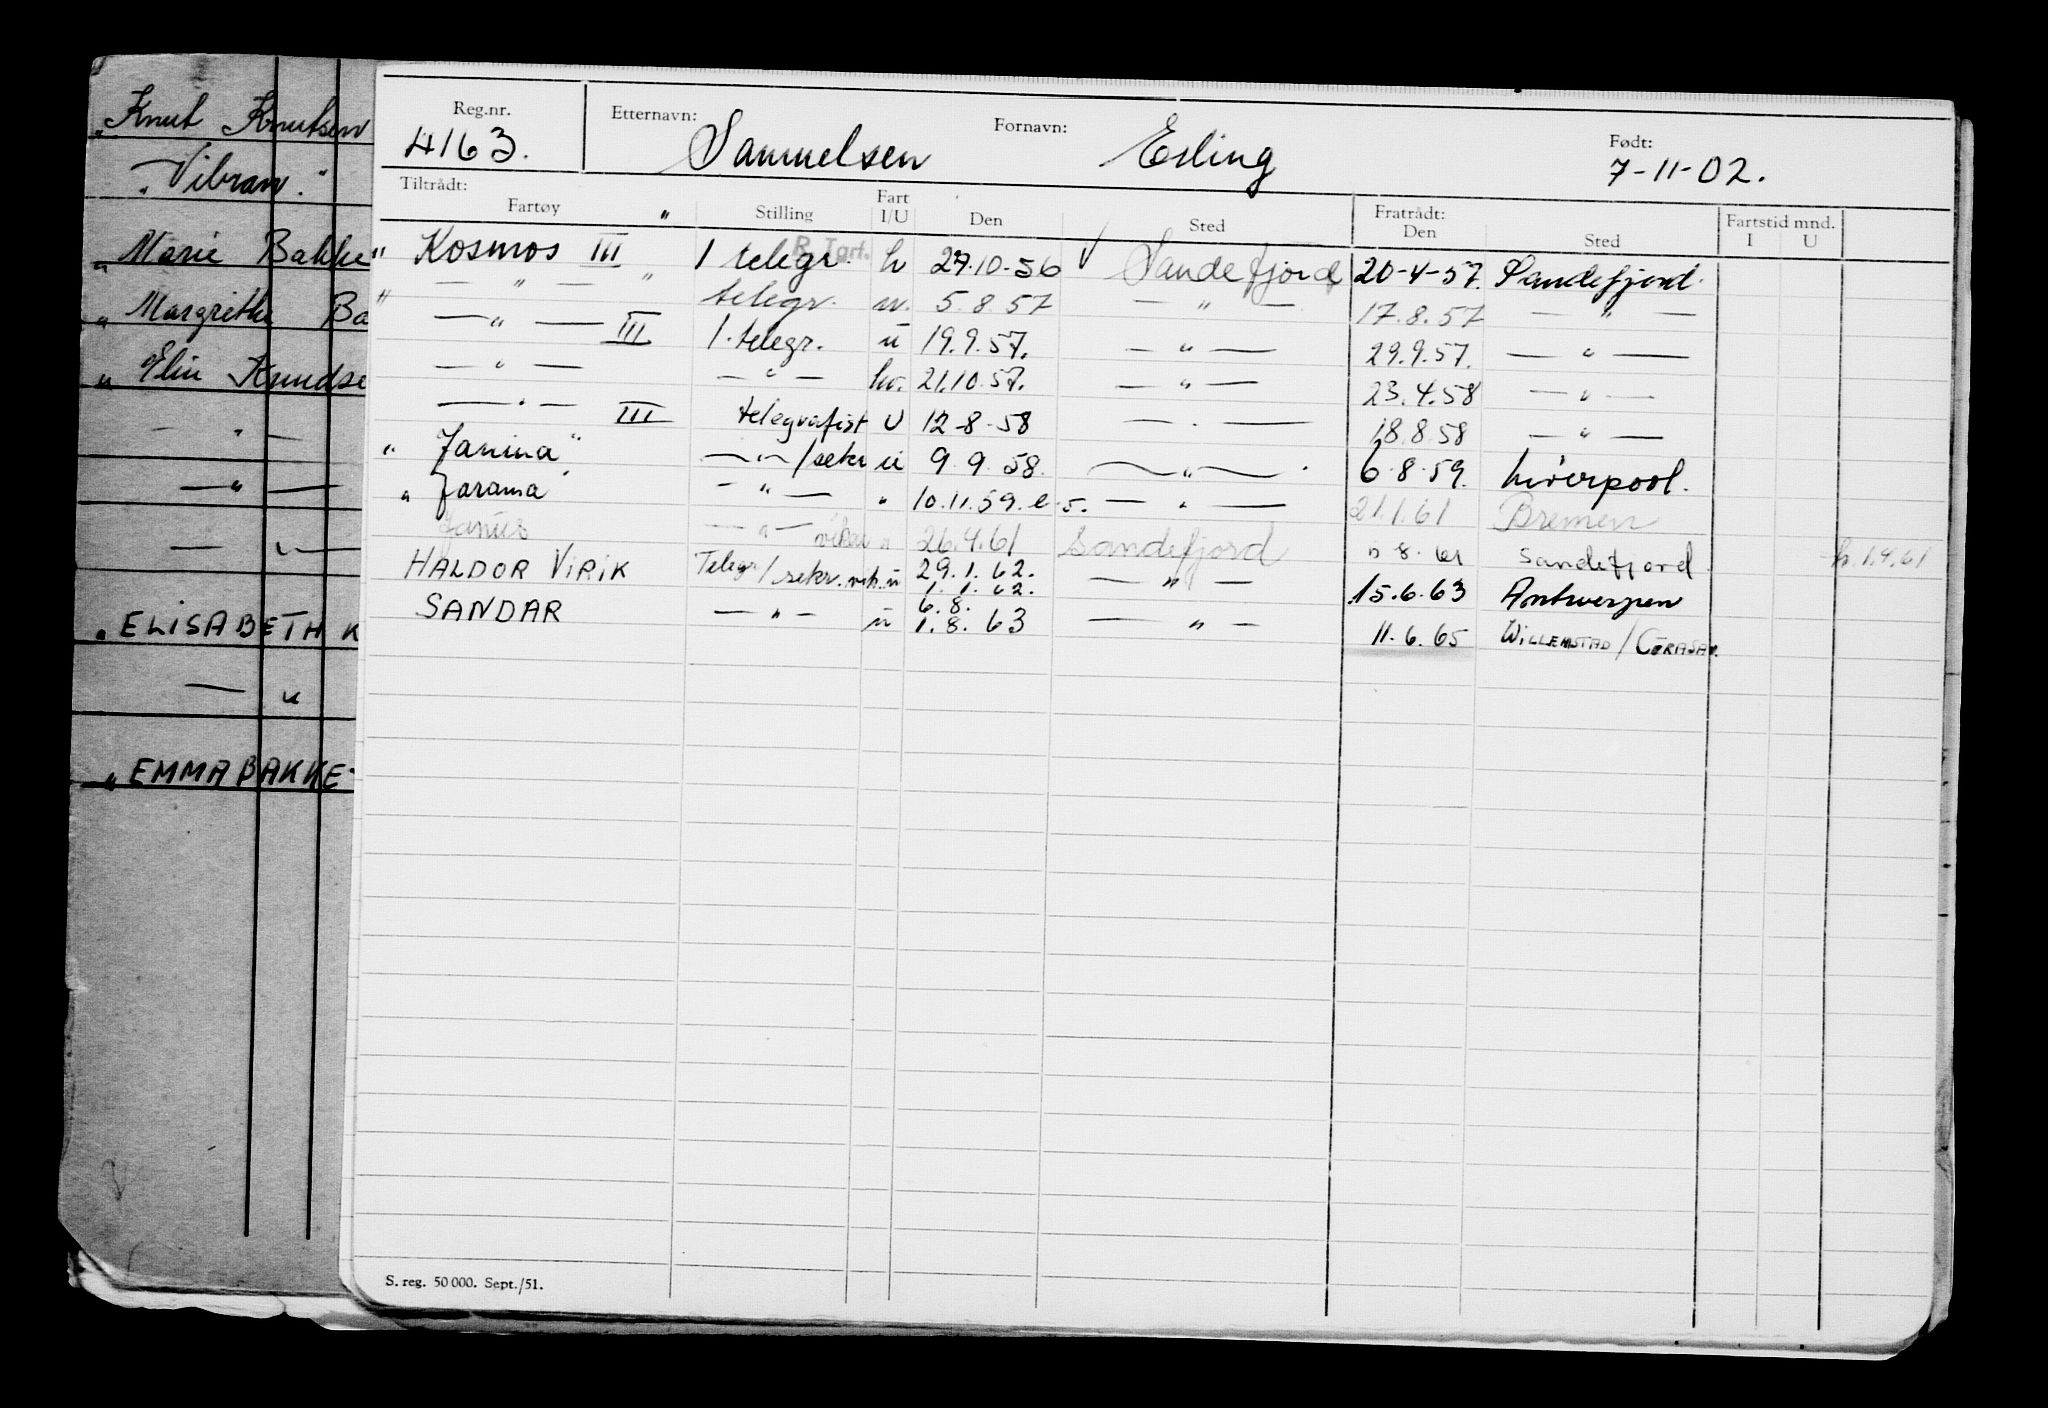 Reg.nr. Etternavn: Fornavn: Født:
4163. Samuelsen Erling 7-11-02.
Tiltrådt: Fratrådt: Fartstid mnd.
Fartøy Stilling Fart I/U Den Sted Den Sted I U
" Kosmos III " 1 telegr. h 27.10.56 Sandefjord 20-4-57. Sandefjord.
" — " — " telegr. 5.8.57 — " — 17.8.57 — " —
— " — III 1. telegr. u 19.9.57. — " — 29.9.57. — " —
— " — — " — hv. 21.10.57. — " — 23.4.58 — " —
— " — III telegrafist U 12-8-58 — " — 18.8.58 — " —
" Janina " — " — /sekr u 9.9.58. — " — 6-8-59. Liverpool.
" Jarama " — " — " 10.11.59. — " — 21.1.61 Bremen
Janus — " — vikar " 26.4.61 Sandefjord 8.61 Sandefjord. 1.9.61
HALDOR VIRIK Telegr/sekr. vik. u 29.1.62. — " — 15.6.63 Antwerpen
1.1.62.
6.8.
SANDAR — " — u 1.8.63 — " — 11.6.65 WILLEMSTAD/CURASAO.
S. reg. 50 000. Sept./51.
" Knut Knutsen
" Vibran. "
" Marie Bakke
" Margrethe Ba
" Elin Knudse
— " —
— " —
— " —
" ELISABETH K
— "
" EMMA BAKKE